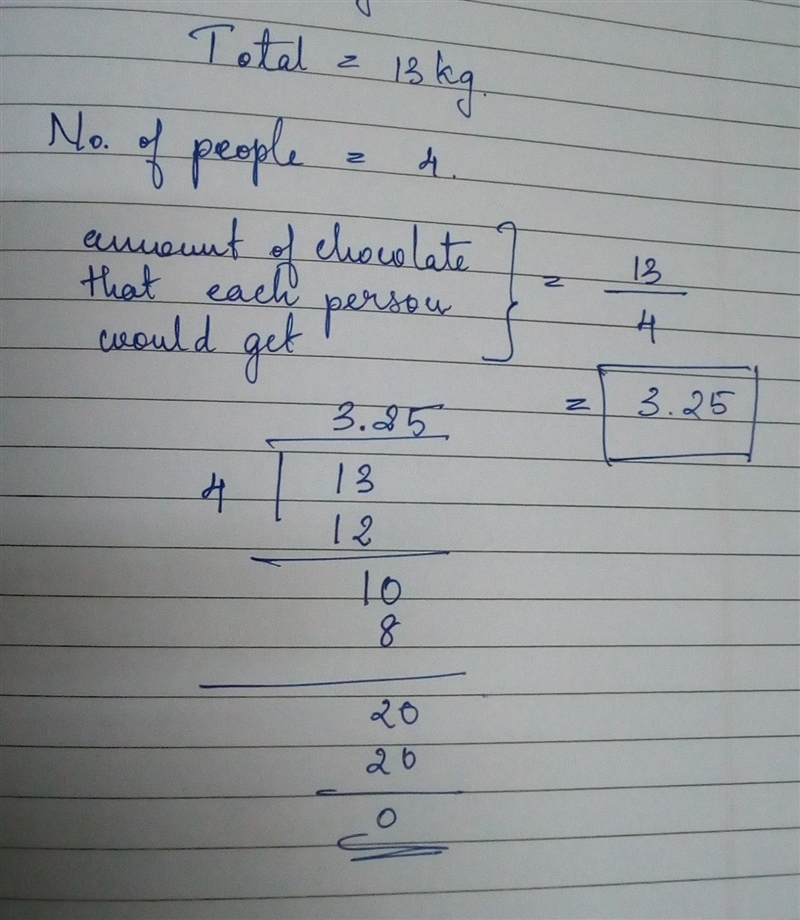 Total = 13 kg.
No. of people = 4.
amount of chocolate
that each person
would get } = 13/4
= 3.25
3.25
4 13
12
10
8
20
20
0